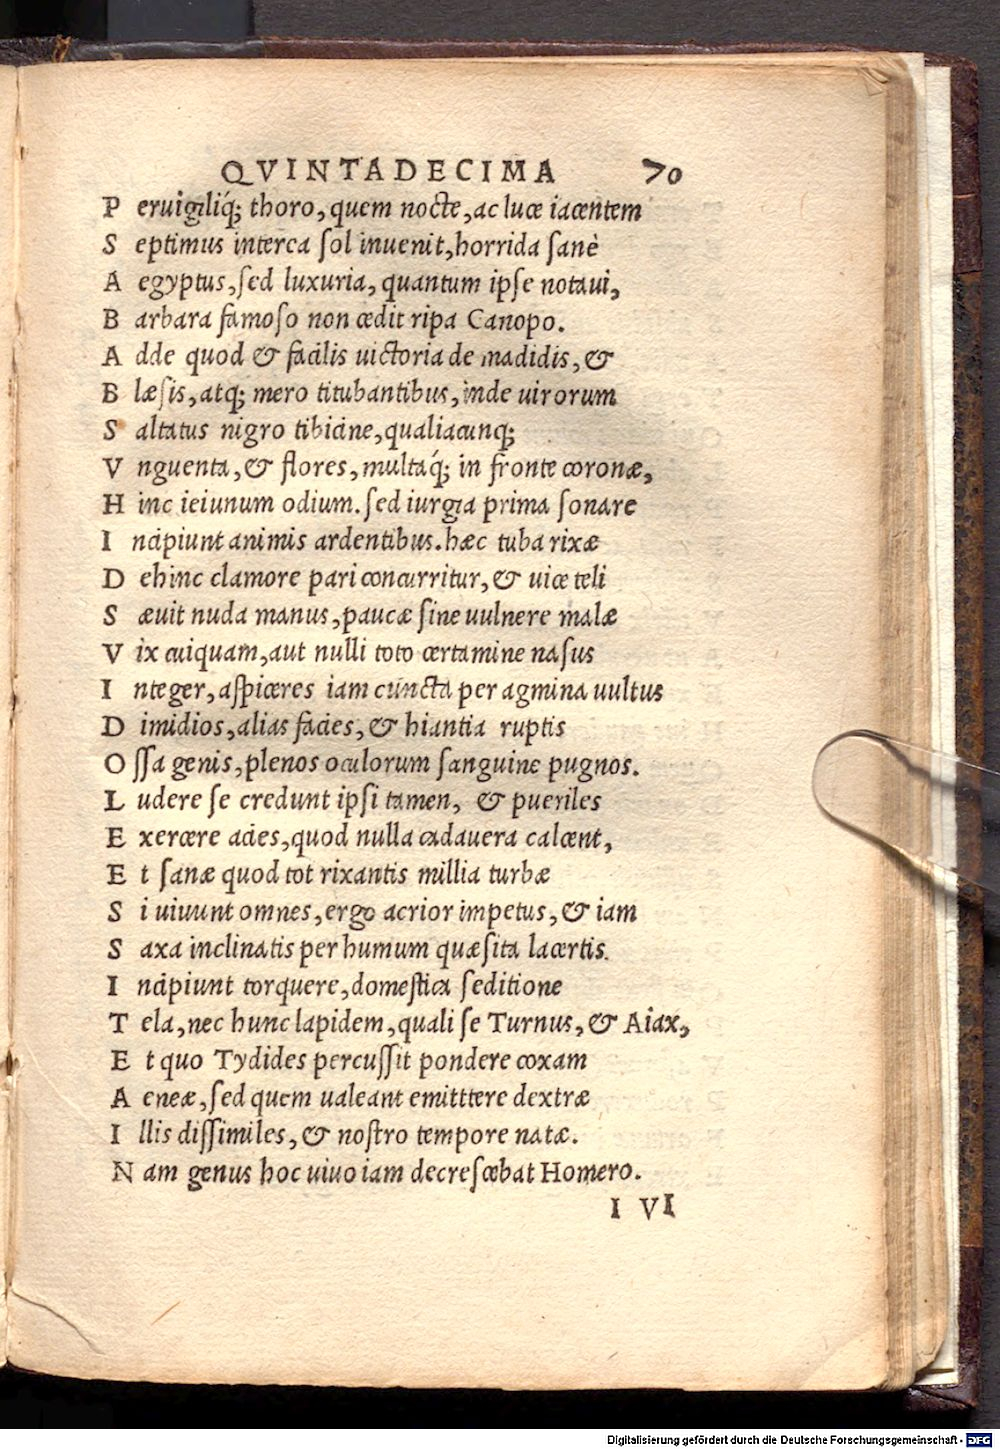 QVINTADECIMA 70
P eruigiliq́; thoro, quem nocte, ac luce iacentem
S eptimus interea sol inuenit, horrida sanè
A egyptus, sed luxuria, quantum ipse notaui,
B arbara famoso non cedit ripa Canopo.
A dde quod & facilis uictoria de madidis, &
B læsis, atq; mero titubantibus, inde uirorum
S altatus nigro tibicine, qualiacunq;
V nguenta, & flores, multaq́; in fronte coronæ,
H inc ieiunum odium. sed iurgia prima sonare
I ncipiunt animis ardentibus. hæc tuba rixæ
D ehinc clamore pari concurritur, & uice teli
S æuit nuda manus, paucæ sine uulnere malæ
V ix cuiquam, aut nulli toto certamine nasus
I nteger, aspiceres iam cuncta per agmina uultus
D imidios, alias facies, & hiantia ruptis
O ssa genis, plenos oculorum sanguine pugnos.
L udere se credunt ipsi tamen, & pueriles
E xercere acies, quod nulla cadauera calcent,
E t sanæ quod tot rixantis millia turbæ
S i uiuunt omnes, ergo acrior impetus, & iam
S axa inclinatis per humum quæsita lacertis.
I ncipiunt torquere, domestica seditione
T ela, nec hunc lapidem, quali se Turnus, & Aiax,
E t quo Tydides percussit pondere coxam
A eneæ, sed quem ualeant emitttere dextræ
I llis dissimiles, & nostro tempore natæ.
N am genus hoc uiuo iam decrescebat Homero.
I VI
Digitalisierung gefördert durch die Deutsche Forschungsgemeinschaft - DFG